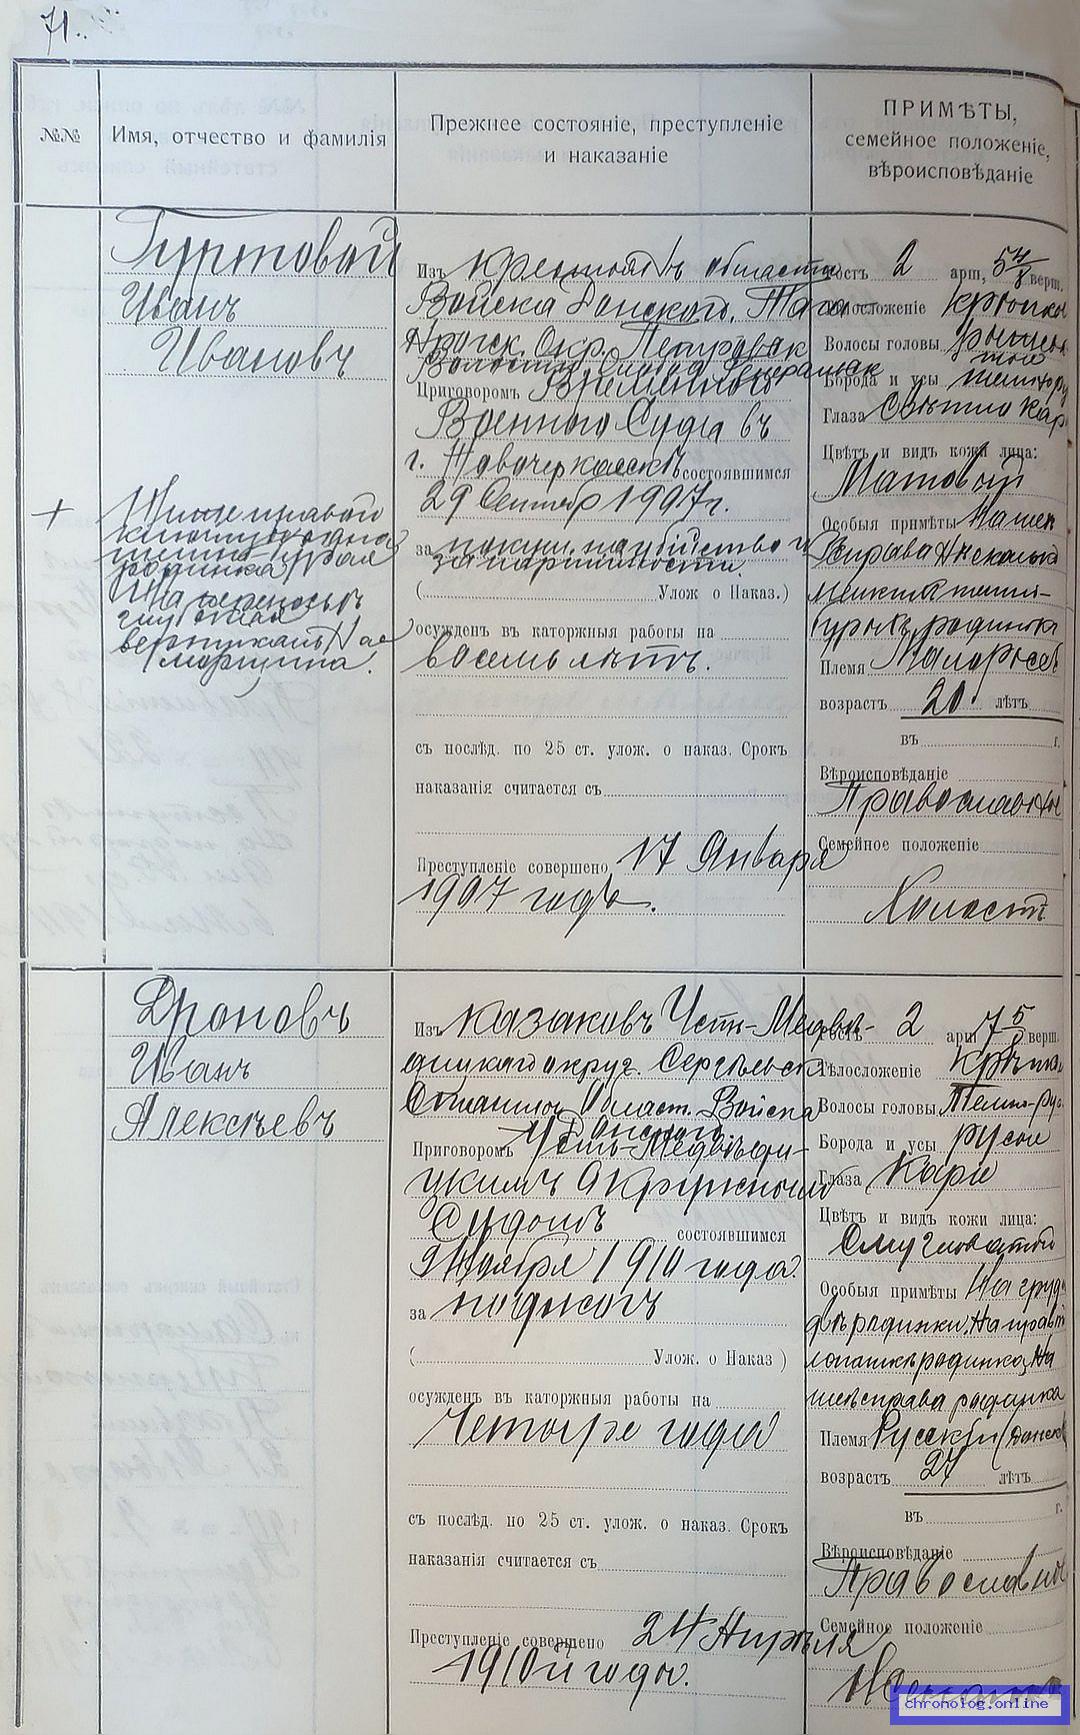 71.
№№
Имя, отчество и фамилія
Прежнее состояніе, преступленіе
и наказаніе
ПРИМѢТЫ,
семейное положеніе,
вѣроисповѣданіе
Гуртовой
Иванъ
Ивановъ
+
родинка
морщина.
Изъ крестьянъ области
Войска Донского, Таган-
рогск. Окр. Петровск
Приговоромъ Временного
Военного Суда въ
г. Новочеркасскѣ состоявшимся
29 Сентябр 1907 г.
за покуш. на убійство и
запаримости.
( Улож о Наказ.)
осужден въ каторжныя работы на
восемь лѣтъ.
съ послѣд. по 25 ст. улож. о наказ. Срокъ
наказанія считается съ
Преступленіе совершено 17 Января
1907 года.
Ростъ 2 арш, 5 4/8 верш.
Тѣлосложеніе крѣпкое
Волосы головы
Борода и усы
Глаза Свѣтло кар
Цвѣтъ и видъ кожи лица:
Матовый
Особыя примѣты На шеѣ
справа нѣсколько
мелкихъ
родинка
Племя Малоросс
возрастъ 20 лѣтъ
въ г.
Вѣроисповѣданіе
Православное
Семейное положеніе
Холостъ
Дроновъ
Иванъ
Алексѣевъ
Изъ казаковъ Усть-Медвѣ-
дицкаго округ. Сергіевск
Станицы Област. Войска
Донского
Приговоромъ Усть-Медвѣди-
цкимъ Окружнымъ
Судомъ состоявшимся
9 Ноября 1910 года.
за поджогъ
( Улож. о Наказ )
осужденъ въ каторжныя работы на
Четыре года
съ послѣд. по 25 ст. улож. о наказ. Срокъ
наказанія считается съ
Преступленіе совершено 24 Апрѣля
1910 года.
Ростъ 2 арш 7 5/8 верш.
Тѣлосложеніе крѣпкое
Волосы головы Темно-рус.
Борода и усы русые
Глаза Каріе
Цвѣтъ и видъ кожи лица:
Смугловатый
Особыя примѣты На груди
двѣ родинки, На правой
лопаткѣ родинка, На
шеѣ справа родинка
Племя Русскій Донск
возрастъ 27 лѣтъ
въ г.
Вѣроисповѣданіе
Православное
Семейное положеніе
chronolog.online